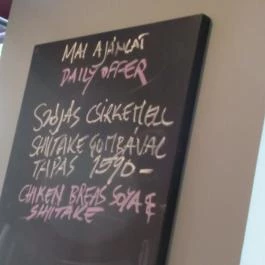 MAI AJÁNLAT
DAILY OFFER
SZÓJÁS CSIRKEMELL
SHIITAKE GOMBÁVAL
TAPAS 1590-
CHIKEN BREAS SOYA &
SHIITAKE